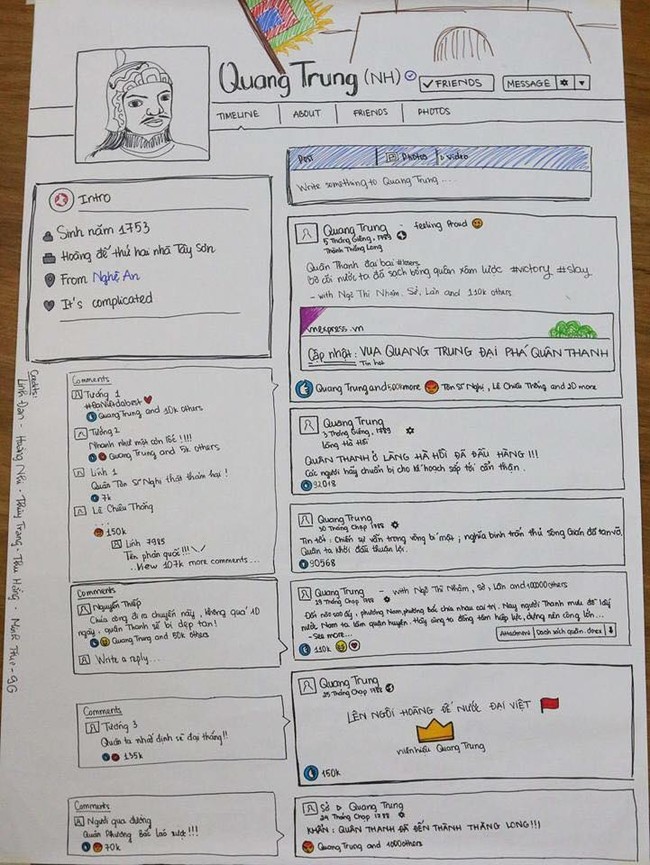 Quang Trung (NH)
FRIENDS
MESSAGE
TIMELINE
ABOUT
FRIENDS
PHOTOS
Intro
Sinh năm 1753
Hoàng đế thứ hai nhà Tây Sơn
From Nghệ An
It's complicated
Post
Photos
Video
Write something to Quang Trung ....
Quang Trung - feeling Proud
5 Tháng Giêng, 1789
Thành Thăng Long
Quân Thanh đại bại #losers
Bờ cõi nước ta đã sạch bóng quân xâm lược #victory #slay
- with Ngô Thì Nhậm, Sở, Lân and 110k others
vnexpress.vn
Cập nhật: VUA QUANG TRUNG ĐẠI PHÁ QUÂN THANH
Tin hot
Quang Trung and 500k more
Tôn Sĩ Nghị, Lê Chiêu Thống and 20 more
Comments
Tướng 1
Quang Trung and 10k others
Tướng 2
Nhanh như một cơn !!!!
Quang Trung and 5k others
Lính 1
Quân Tôn Sĩ Nghị thật thảm hại!
7k
Lê Chiêu Thống
...
150k
Lính 7985
Tên phản quốc!!!
...View 107k more comments...
Quang Trung
3 Tháng Giêng, 1789
Làng Hà Hồi
QUÂN THANH Ở LÀNG HÀ HỒI ĐÃ ĐẦU HÀNG!!!
Các ngươi hãy chuẩn bị cho kế hoạch sắp tới cẩn thận.
92018
Quang Trung
30 Tháng Chạp 1788
Tin tốt: Chiến sự vẫn trong vòng bí mật; nghĩa binh trấn thủ sông Gián đã tan vỡ.
Quân ta khởi đầu thuận lợi.
90568
Comments
Nguyễn Thiếp
Chúa công đi ra chuyến này, không quá 10
ngày, quân Thanh sẽ bị dẹp tan!
Quang Trung and 50k others
Write a reply...
Quang Trung - with Ngô Thì Nhậm, Sở, Lân and 100000 others
29 Tháng Chạp 1788
phương Nam, phương Bắc chia nhau cai trị. Nay người Thanh mưu đồ lấy
nước Nam ta làm quận huyện. Hãy cùng ta đồng tâm hiệp lực, dựng nên công lớn...
-See more...
Attachment
Danh sách quân.docx
110k
Comments
Tướng 3
Quân ta nhất định sẽ đại thắng!!
195k
Quang Trung
25 Tháng Chạp 1788
LÊN NGÔI HOÀNG ĐẾ NƯỚC ĐẠI VIỆT
niên hiệu Quang Trung
150k
Comments
Người qua đường
Quân Phương Bắc láo xược!!!
70k
Sở ▷ Quang Trung
24 Tháng Chạp 1788
KHẨN: QUÂN THANH ĐÃ ĐẾN THÀNH THĂNG LONG!!!
Quang Trung and 1000 others
Credits:
Linh Đan - Hoàng Nhi - Thùy Trang - Thu Hồng -